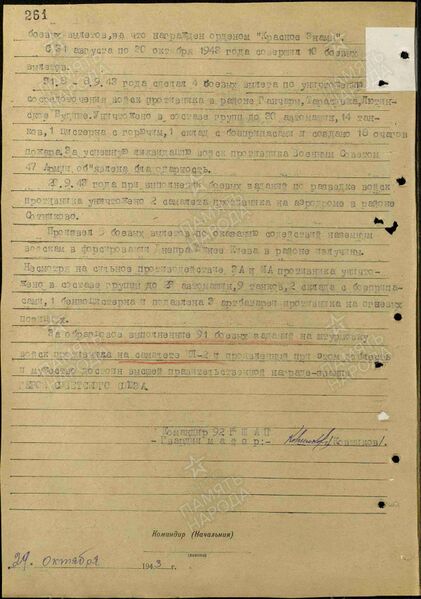 261
боевых вылетов, на что награжден орденом "Красное Знамя".
С 31 августа по 20 октября 1943 года совершил 10 боевых
вылетов.
31.8 - 6.9.43 года сделал 4 боевых вылета по уничтожению
сосредоточения войск противника в районе Гончары, Тарасовка, Лютен-
ские Будищe. Уничтожено в составе групп до 20 автомашин, 14 тан-
ков, 1 цистерна с горючим, 1 склад с боеприпасами и создано 16 очагов
пожара. За успешную ликвидацию войск противника Военным Советом
47 Армии объявлена благодарность.
9.43 года при выполнении боевых заданий по разведке войск
противника уничтожено 2 самолета противника на аэродроме в районе
Сотниково.
Произвел 5 боевых вылетов по оказанию содействий наземным
войскам в форсировании Днепра южнее Киева в районе излучины.
Несмотря на сильное противодействие ЗА и ИА противника уничто-
жено в составе группы до 25 автомашин, 9 танков, 2 склада с боеприпа-
сами, 1 бензоцистерна и подавлена 3 артбатареи противника на огневых
позициях.
За образцовое выполнение 91 боевых заданий на штурмовку
войск противника на самолете ИЛ-2 и проявленный при этом
и мужество достоин высшей правительственной награде-
ГЕРОЯ СОВЕТСКОГО СОЮЗА
Командир 92 ГШАП
- Гвардии майор:-
Командир (Начальник)
29 октября 1943 г.
ПАМЯТЬ НАРОДА